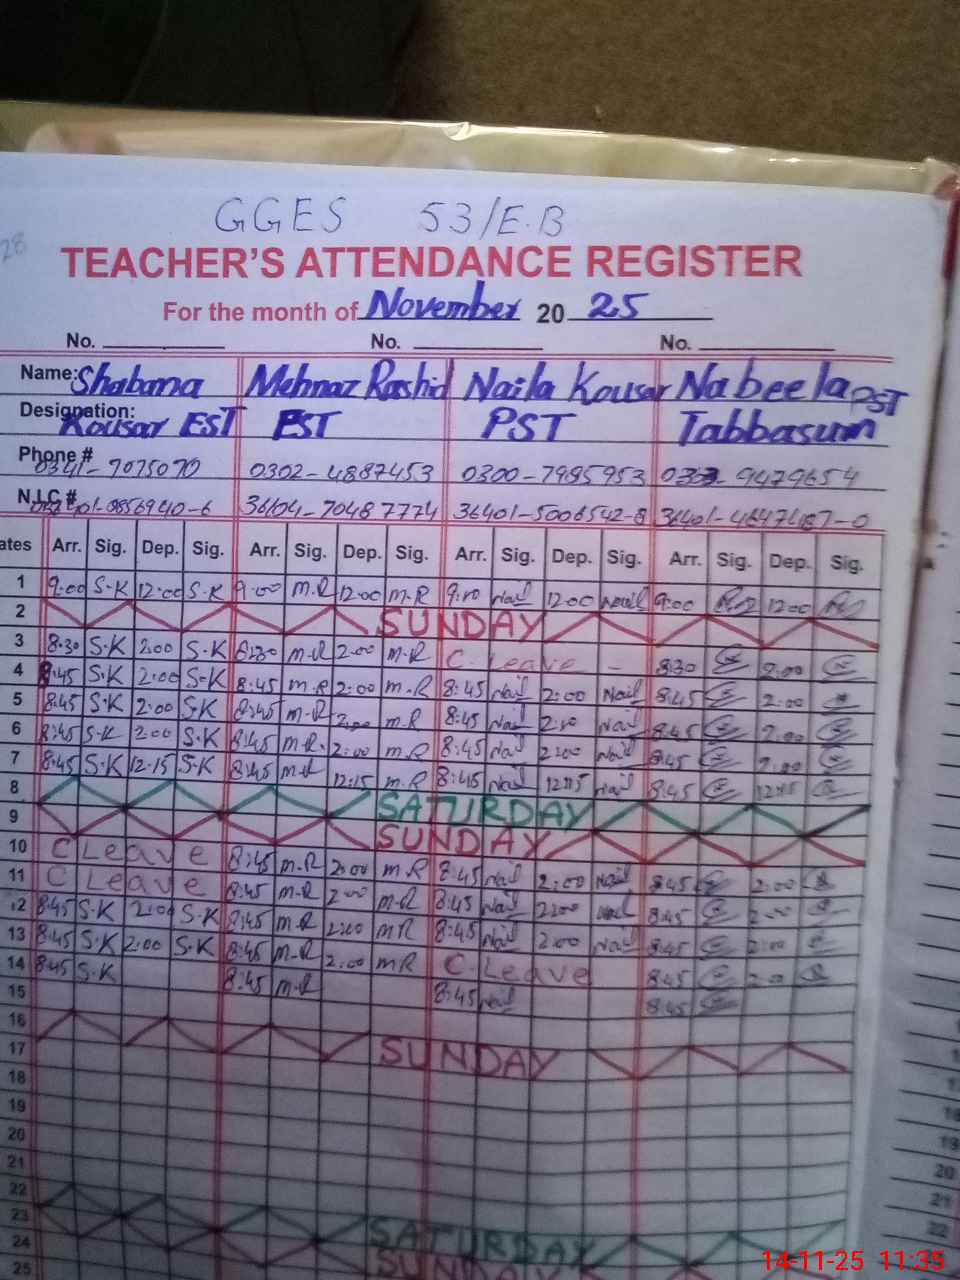 28
GGES 53/E.B
TEACHER'S ATTENDANCE REGISTER
For the month of November 20 25
No. No. No.
Name: Shabana Mehnaz Rashid Naila Kousar Nabeela PST
Designation: Kousar EST EST PST Tabbasum
Phone # 0341-7075070 0302-4887453 0300-7995953 9479654
N.I.C # 0856940-6 36104-70487774 36401-5006542-8
ates Arr. Sig. Dep. Sig. Arr. Sig. Dep. Sig. Arr. Sig. Dep. Sig. Arr. Sig. Dep. Sig.
1 9:00 S.K 12:00 S.K 9:00 m.R 12:00 m.R 9:00 Nail 12:00 Nail 9:00 12:00
2 SUNDAY
3 8:30 S.K 2:00 S.K 8:30 m.R 2:00 m.R C. Leave - 8:30 2:00
4 8:45 S.K 2:00 S.K 8:45 m.R 2:00 m.R 8:45 Nail 2:00 Nail 8:45 2:00
5 8:45 S.K 2:00 S.K 8:45 m.R 2:00 m.R 8:45 Nail 2:00 Nail 8:45 2:00
6 8:45 S.K 2:00 S.K 8:45 m.R 2:00 m.R 8:45 Nail 2:00 Nail 8:45 2:00
7 8:45 S.K 12:15 S.K 8:45 m.R 12:15 m.R 8:45 Nail 12:15 Nail 8:45 12:15
8 SATURDAY
9 SUNDAY
10 C Leave 8:45 m.R 2:00 m.R 8:45 Nail 2:00 Nail 8:45 2:00
11 C Leave 8:45 m.R 2:00 m.R 8:45 Nail 2:00 Nail 8:45 2:00
12 8:45 S.K 2:00 S.K 8:45 m.R 2:00 mR 8:45 Nail 2:00 Nail 8:45 2:00
13 8:45 S.K 2:00 S.K 8:45 m.R 2:00 mR C. Leave 8:45 2:00
14 8:45 S.K 8:45 m.R 8:45 Nail 8:45
15
16 SUNDAY
17
18
19
20
21
22 SATURDAY
23 SUNDAY
24
25
20
21
22
14-11-25 11:35